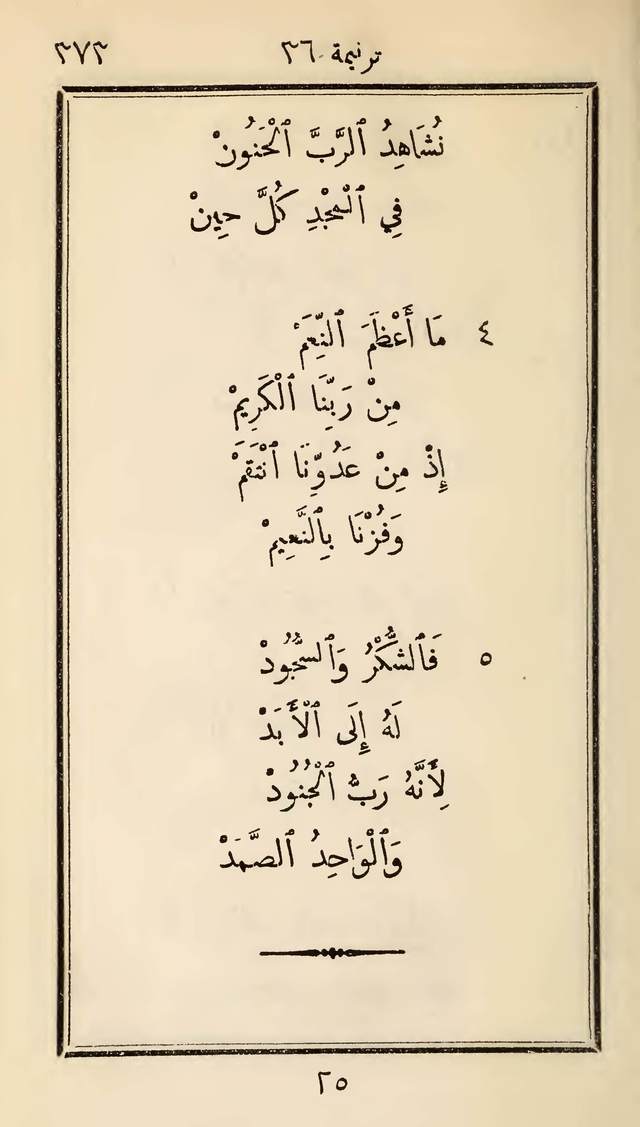 ترنيمة ٣٦ ٣٧٣
نُشَاهِدُ ٱلرَّبَّ ٱلْحَنُونْ
فِي ٱلْمَجْدِ كُلَّ حِينْ
٤ مَا أَعْظَمَ ٱلنِّعَمْ
مِنْ رَبِّنَا ٱلْكَرِيمْ
إِذْ مِنْ عَدُوِّنَا ٱنْتَقَمْ
وَفُزْنَا بِٱلنَّعِيمْ
٥ فَٱلشُّكْرُ وَٱلسُّجُودْ
لَهُ إِلَى ٱلْأَبَدْ
لِأَنَّهُ رَبُّ ٱلْجُنُودْ
وَٱلْوَاحِدُ ٱلصَّمَدْ
٢٥